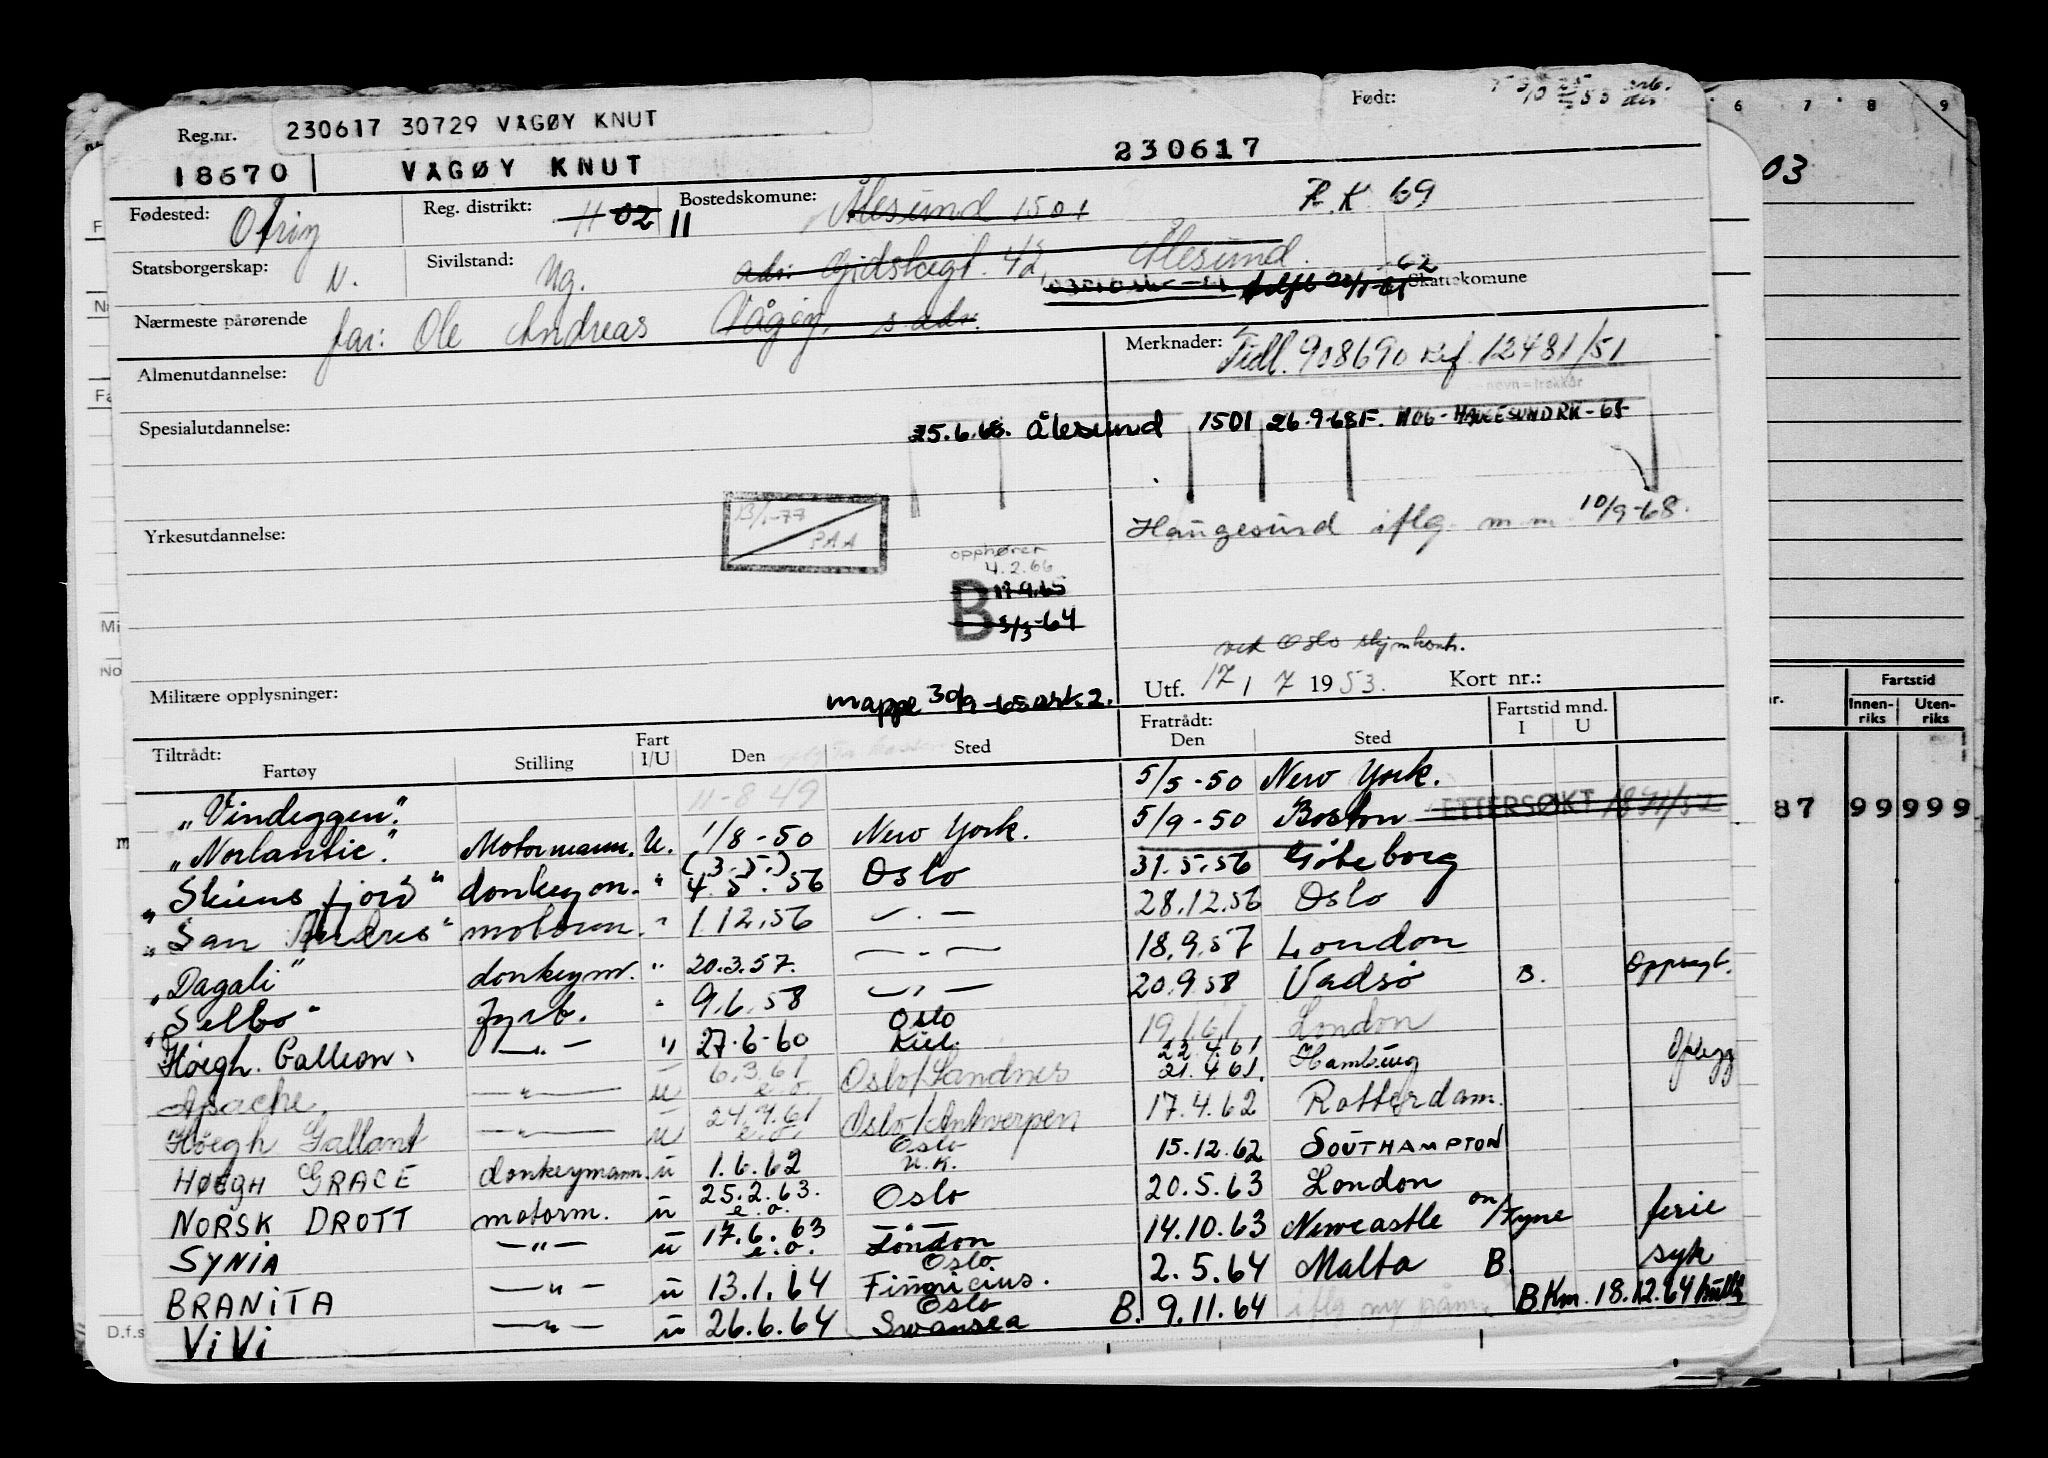 Reg.nr. 230617 30729 VÅGØY KNUT Født:
18670 VÅGØY KNUT 230617
Fødested: Otrøy Reg. distrikt: 11 02 11 Bostedskomune: Ålesund 1501 R.K 69
Statsborgerskap: N. Sivilstand: Ug. adr: Gidskegt. 42, Ålesund.
Skattekomune
Nærmeste pårørende far: Ole Andreas Vågøy, s. adr.
Almenutdannelse: Merknader: Tidl. 908690 Ref. 12481/51
Spesialutdannelse: 25.6.68. Ålesund 1501 26.9.68 F. 1106 - HAUGESUND RK - 68
Yrkesutdannelse: 13/1-77 PAA Haugesund iflg. m.m. 10/9-68.
opphører
4.2.66
B 17.9.65
5/3-64
ved Oslo sjømkont.
Militære opplysninger: mappe 30/9-65 ark. 2. Utf. 17 / 7 1953. Kort nr.:
Tiltrådt: Fartøy Stilling Fart I/U Den Sted Fratrådt: Den Sted Fartstid mnd. I U
"Vindeggen". 11-8 49 5/5-50 New York.
"Norlantic". Motormann. U. 1/8-50 New York. 5/9-50 Boston ETTERSØKT
"Skiensfjord" donkeym. " (3.5.) 4.5.56 Oslo 31.5.56 Göteborg
"San Andres" motorm. " 1.12.56 — " — 28.12.56 Oslo
"Dagali" donkeym. " 20.3.57. — " — 18.9.57 London
"Selbo" Fyrb. " 9.6.58 — " — 20.9.58 Vadsø B. Oppsagt.
Høegh Galleon. — " — " 27.6-60 Oslo Kiel. 19.1.61. London
Apache, — " — u 6.3.61 e.o. Oslo/Sandnes 22.4.61 21.4.61. Hamburg Oplegg
Høegh Gallant — " — u 24.7.61 e.o. Oslo/Antwerpen 17.4.62 Rotterdam.
HØEGH GRACE donkeymann. u 1.6.62 Oslo U.K. 15.12.62 SOUTHAMPTON
NORSK DROTT motorm. u 25.2.63. e.o. Oslo 20.5.63 London
SYNIA — " — u 17.6.63 e.o. London 14.10.63 Newcastle on/Tyne ferie
BRANITA — " — u 13.1.64 Oslo 2.5.64 Malta B. syk
ViVi — " — u 26.6.64 Oslo Swansea B. 9.11.64 B.Km. 18.12.64
6 7 8 9
03
Fartstid
Innenriks Utenriks
87 99 999